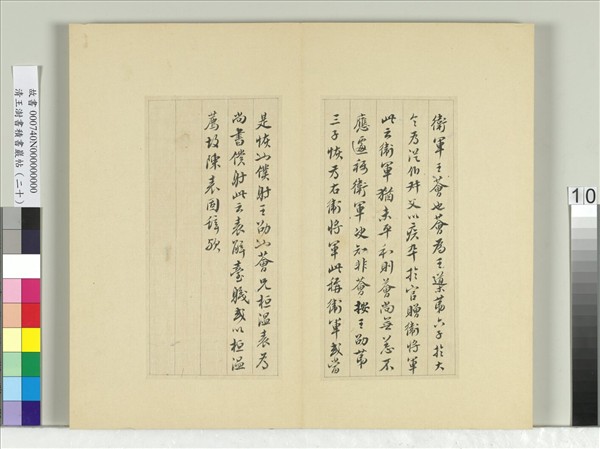 衛軍王薈也薈為王導第六子於大
令為從伯叔父以疾卒於官贈衛將軍
此云衛軍猶未平和則薈尚無恙不
應遽稱衛軍必知非薈按王劭第
三子恢為右衛將軍此稱衛軍或當
是恢小僕射王劭小薈兄桓溫表為
尚書僕射此云表解臺職或以桓溫
薦故陳表固辭歟
故書 000740N000000000
清王澍書積書巖帖（二十）
10